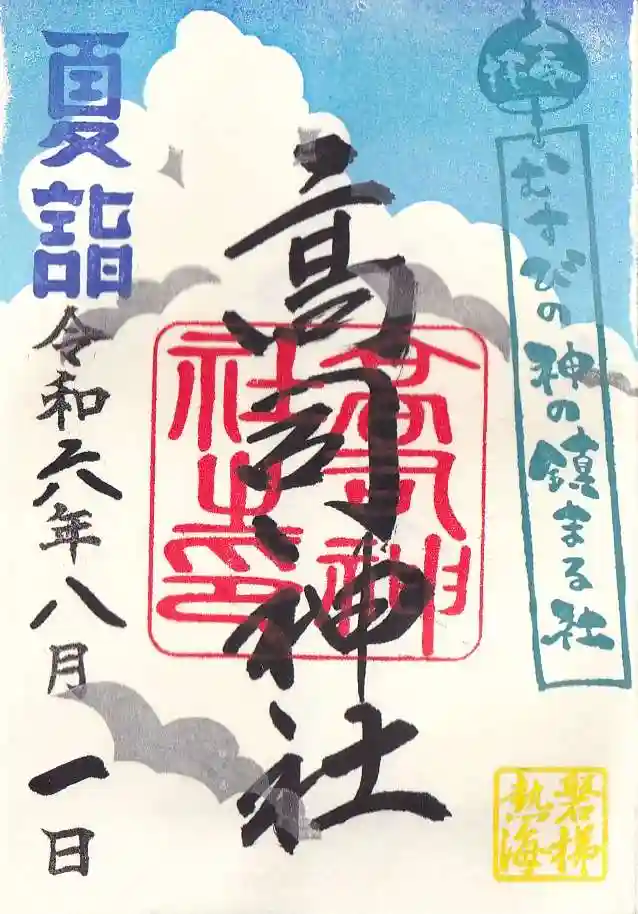 奉拝
むすびの神の鎮まる社
高司神社
高司神社之印
夏詣
令和六年八月一日
磐梯
熱海